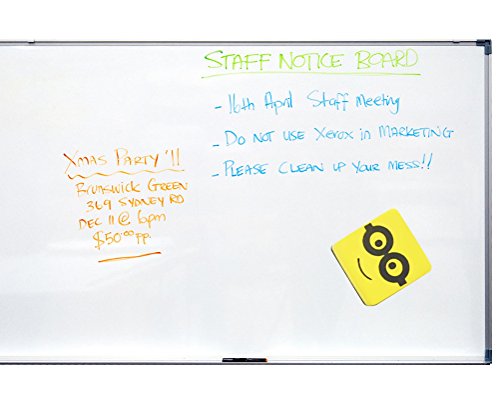 STAFF NOTICE BOARD
- 16th April Staff Meeting
- DO NOT USE Xerox in MARKETING
- PLEASE CLEAN UP YOUR MESS!!
XMAS PARTY '11
BRUNSWICK GREEN
369 SYDNEY RD
DEC 11 @ 6pm
$50.00 pp.